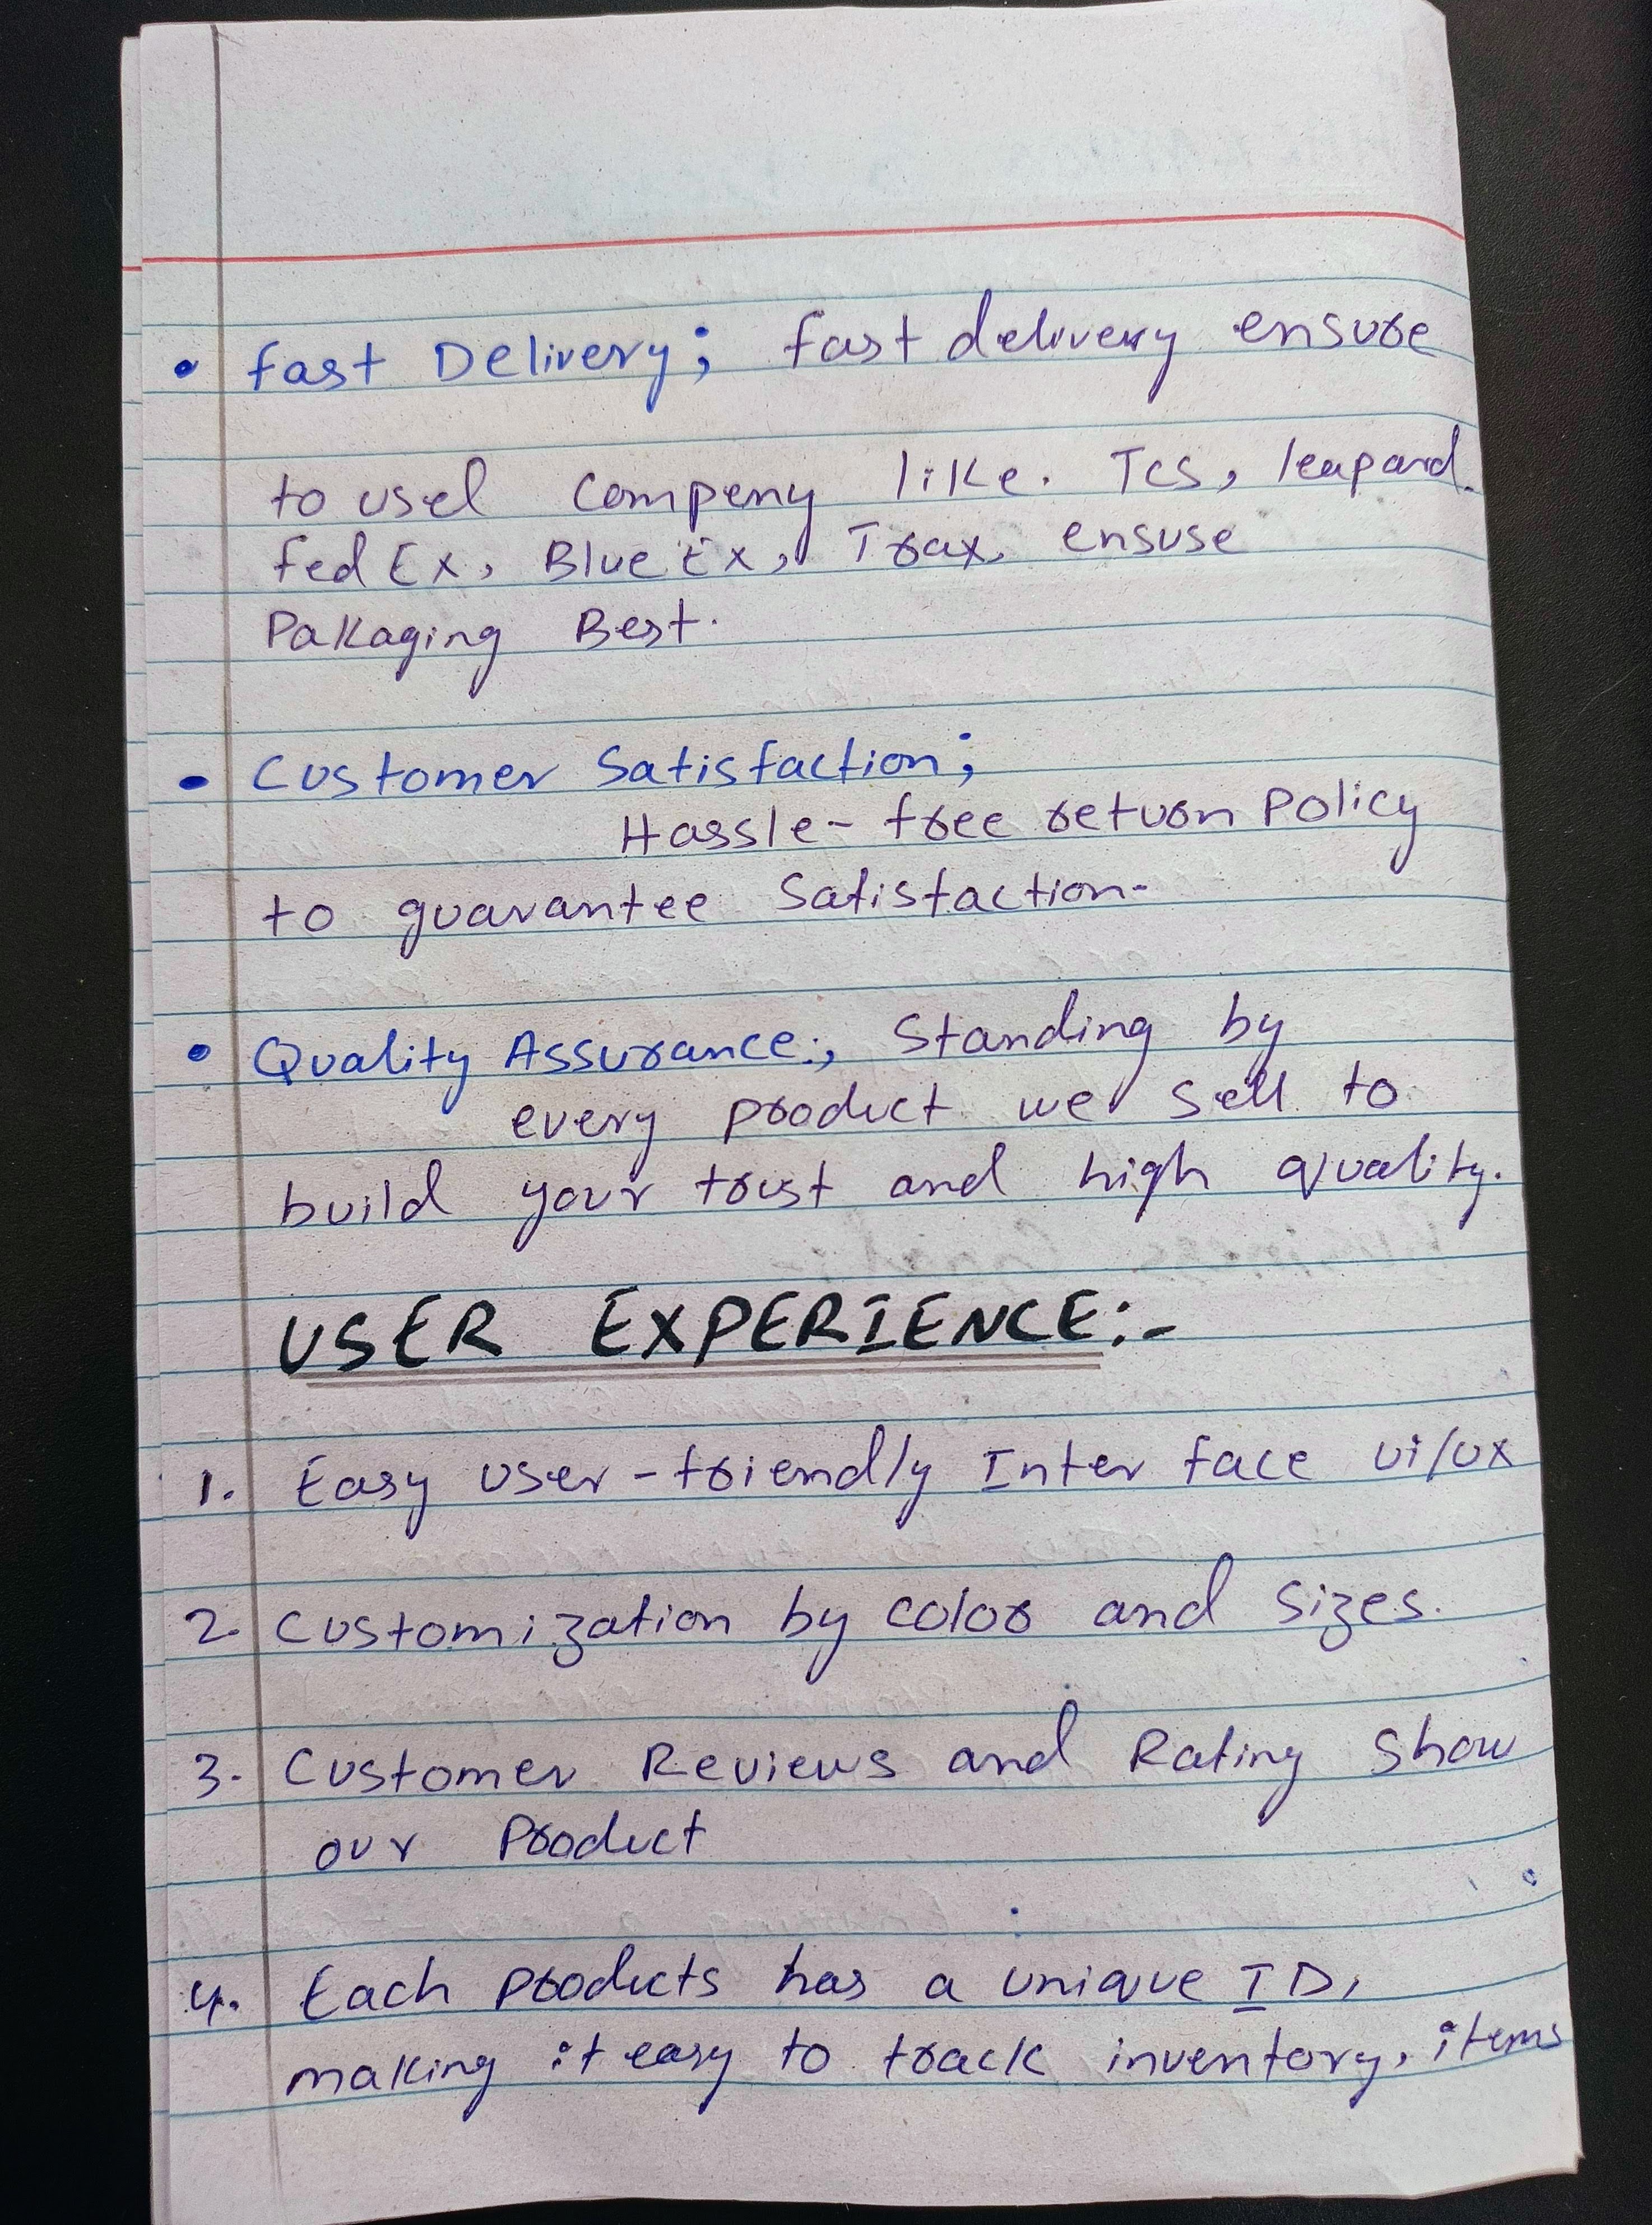 • fast Delivery; fast delivery ensure
to used Compeny like. TCS, leapard.
fed Ex, Blue Ex, Trax, ensuse
Pakaging Best.
• Customer Satisfaction;
Hassle-free return Policy
to guarantee Satisfaction-
• Quality Assurance:, Standing by
every product we sell to
build your trust and high quality.
USER EXPERIENCE:-
1. Easy user-friendly Inter face ui/ux
2. Customization by color and sizes.
3. Customer Reviews and Rating Show
our Product
4. Each products has a unique ID,
making it easy to track inventory, items